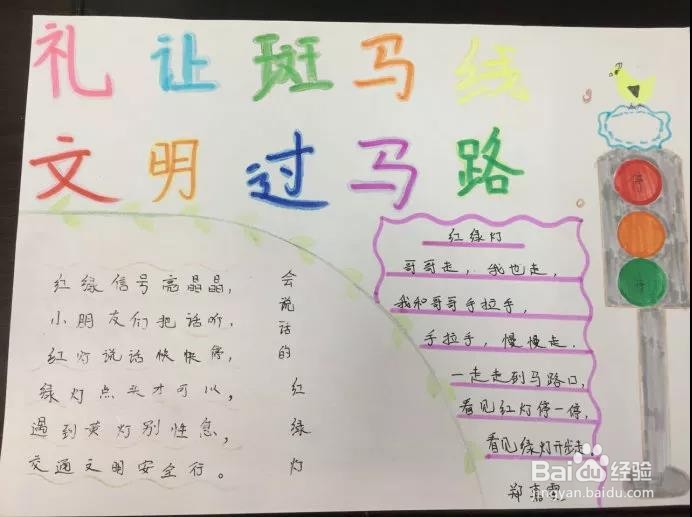 礼让斑马线
文明过马路
会说话的 红绿灯
红绿信号亮晶晶,
小朋友们把话听,
红灯说话快快停,
绿灯点头才可以,
遇到黄灯别性急,
交通文明安全行。
红绿灯
哥哥走,我也走,
我和哥哥手拉手,
手拉手,慢慢走.
一走走到马路口,
看见红灯停一停,
看见绿灯开步走.
郑嘉
停
Baidu经验
jingyan.baidu.com